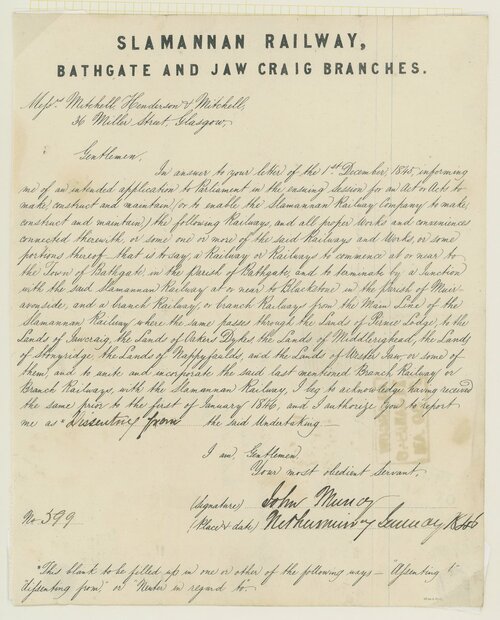 SLAMANNAN RAILWAY,
BATHGATE AND JAW CRAIG BRANCHES.
Messrs Mitchell, Henderson & Mitchell,
36 Miller Street, Glasgow,
Gentlemen,
In answer to your letter of the 1st December, 1845, informing
me of an intended application to Parliament in the ensuing Session for an Act or Acts to
make, construct and maintain, (or to enable the Slamannan Railway Company to make,
construct and maintain) the following Railways, and all proper Works and conveniences
connected therewith, or some one or more of the said Railways and Works, or some
portions thereof that is to say, a Railway or Railways to commence at or near to
the Town of Bathgate, in the Parish of Bathgate, and to terminate by a Junction
with the said Slamannan Railway at or near to Blackstone, in the Parish of Muir
avonside, and a branch Railway, or branch Railways from the Main Line of the
Slamannan Railway where the same passes through the Lands of Lodge, to the
Lands of Jawcraig, the Lands of Oaker Dykes, the Lands of Middlerighead, the Lands
of Stonyridge, the Lands of Nappyfaulds, and the Lands of Wester Jaw, or some of
them, and to unite and incorporate the said last mentioned Branch Railway or
Branch Railways, with the Slamannan Railway, I beg to acknowledge having received
the same prior to the first of January 1846, and I authorize you to report
me as * Dissenting from the said Undertaking
I am, Gentlemen,
Your most obedient Servant,
(Signature) John
(Place & date) January 1846
No 599
*This blank to be filled up in one or other of the following ways — "Assenting to"
"Dissenting from," or "Neuter in regard to".